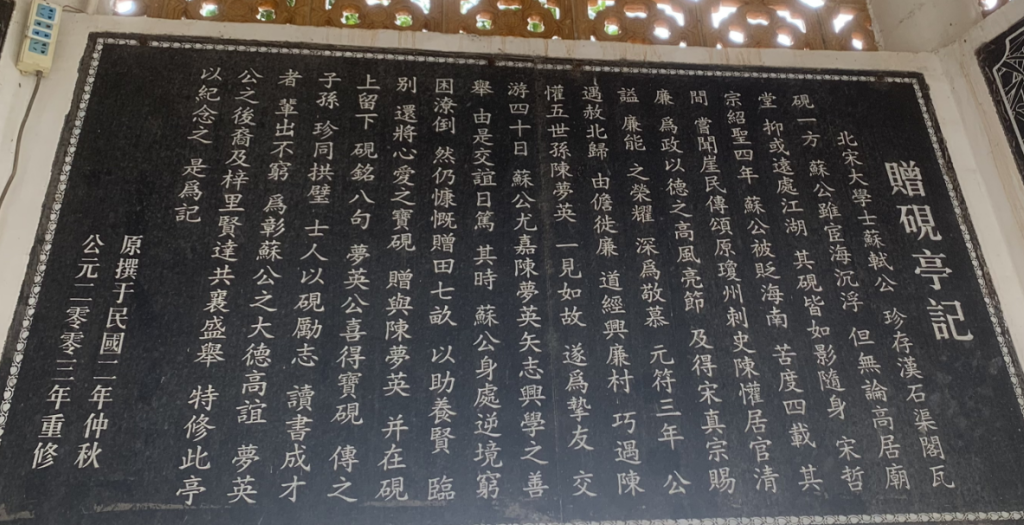 贈硯亭記
北宋大學士蘇軾公 珍存漢石渠閣瓦
硯一方 蘇公雖宦海沉浮 但無論高居廟
堂 抑或遠處江湖 其硯皆如影隨身 宋哲
宗紹聖四年 蘇公被貶海南 苦度四載 其
間 嘗聞崖民傳頌原瓊州刺史陳懽居官清
廉 爲政以德之高風亮節 及得宋真宗賜
謚 廉能 之榮耀 深爲敬慕 元符三年 公
遇赦北歸 由儋徙廉 道經興廉村 巧過陳
懽五世孫陳夢英 一見如故 遂爲摯友 交
游四十日 蘇公尤嘉陳夢英矢志興學之善
舉 由是交誼日篤 其時 蘇公身處逆境窮
困潦倒 然仍慷慨贈田七畝 以助養賢 臨
別 還將心愛之寶硯 贈與陳夢英 并在硯
上留下 硯銘八句 夢英公喜得寶硯 傳之
子孫 珍同拱璧 士人以硯勵志 讀書成才
者 輩出不窮 爲彰蘇公之大德高誼 夢英
公之後裔及梓里賢達共襄盛舉 特修此亭
以紀念之 是爲記
原撰于民國二年仲秋
公元二零零三年重修